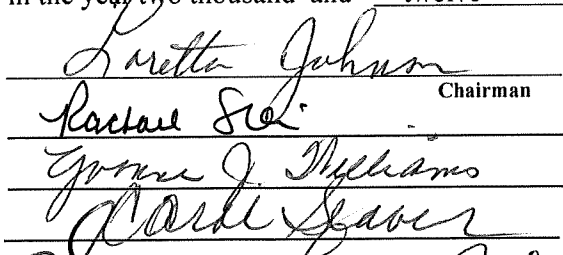 in the year two thousand and twelve
Loretta Johnson
Chairman
Rachael
Yvonne J. Williams
Carol Seaver